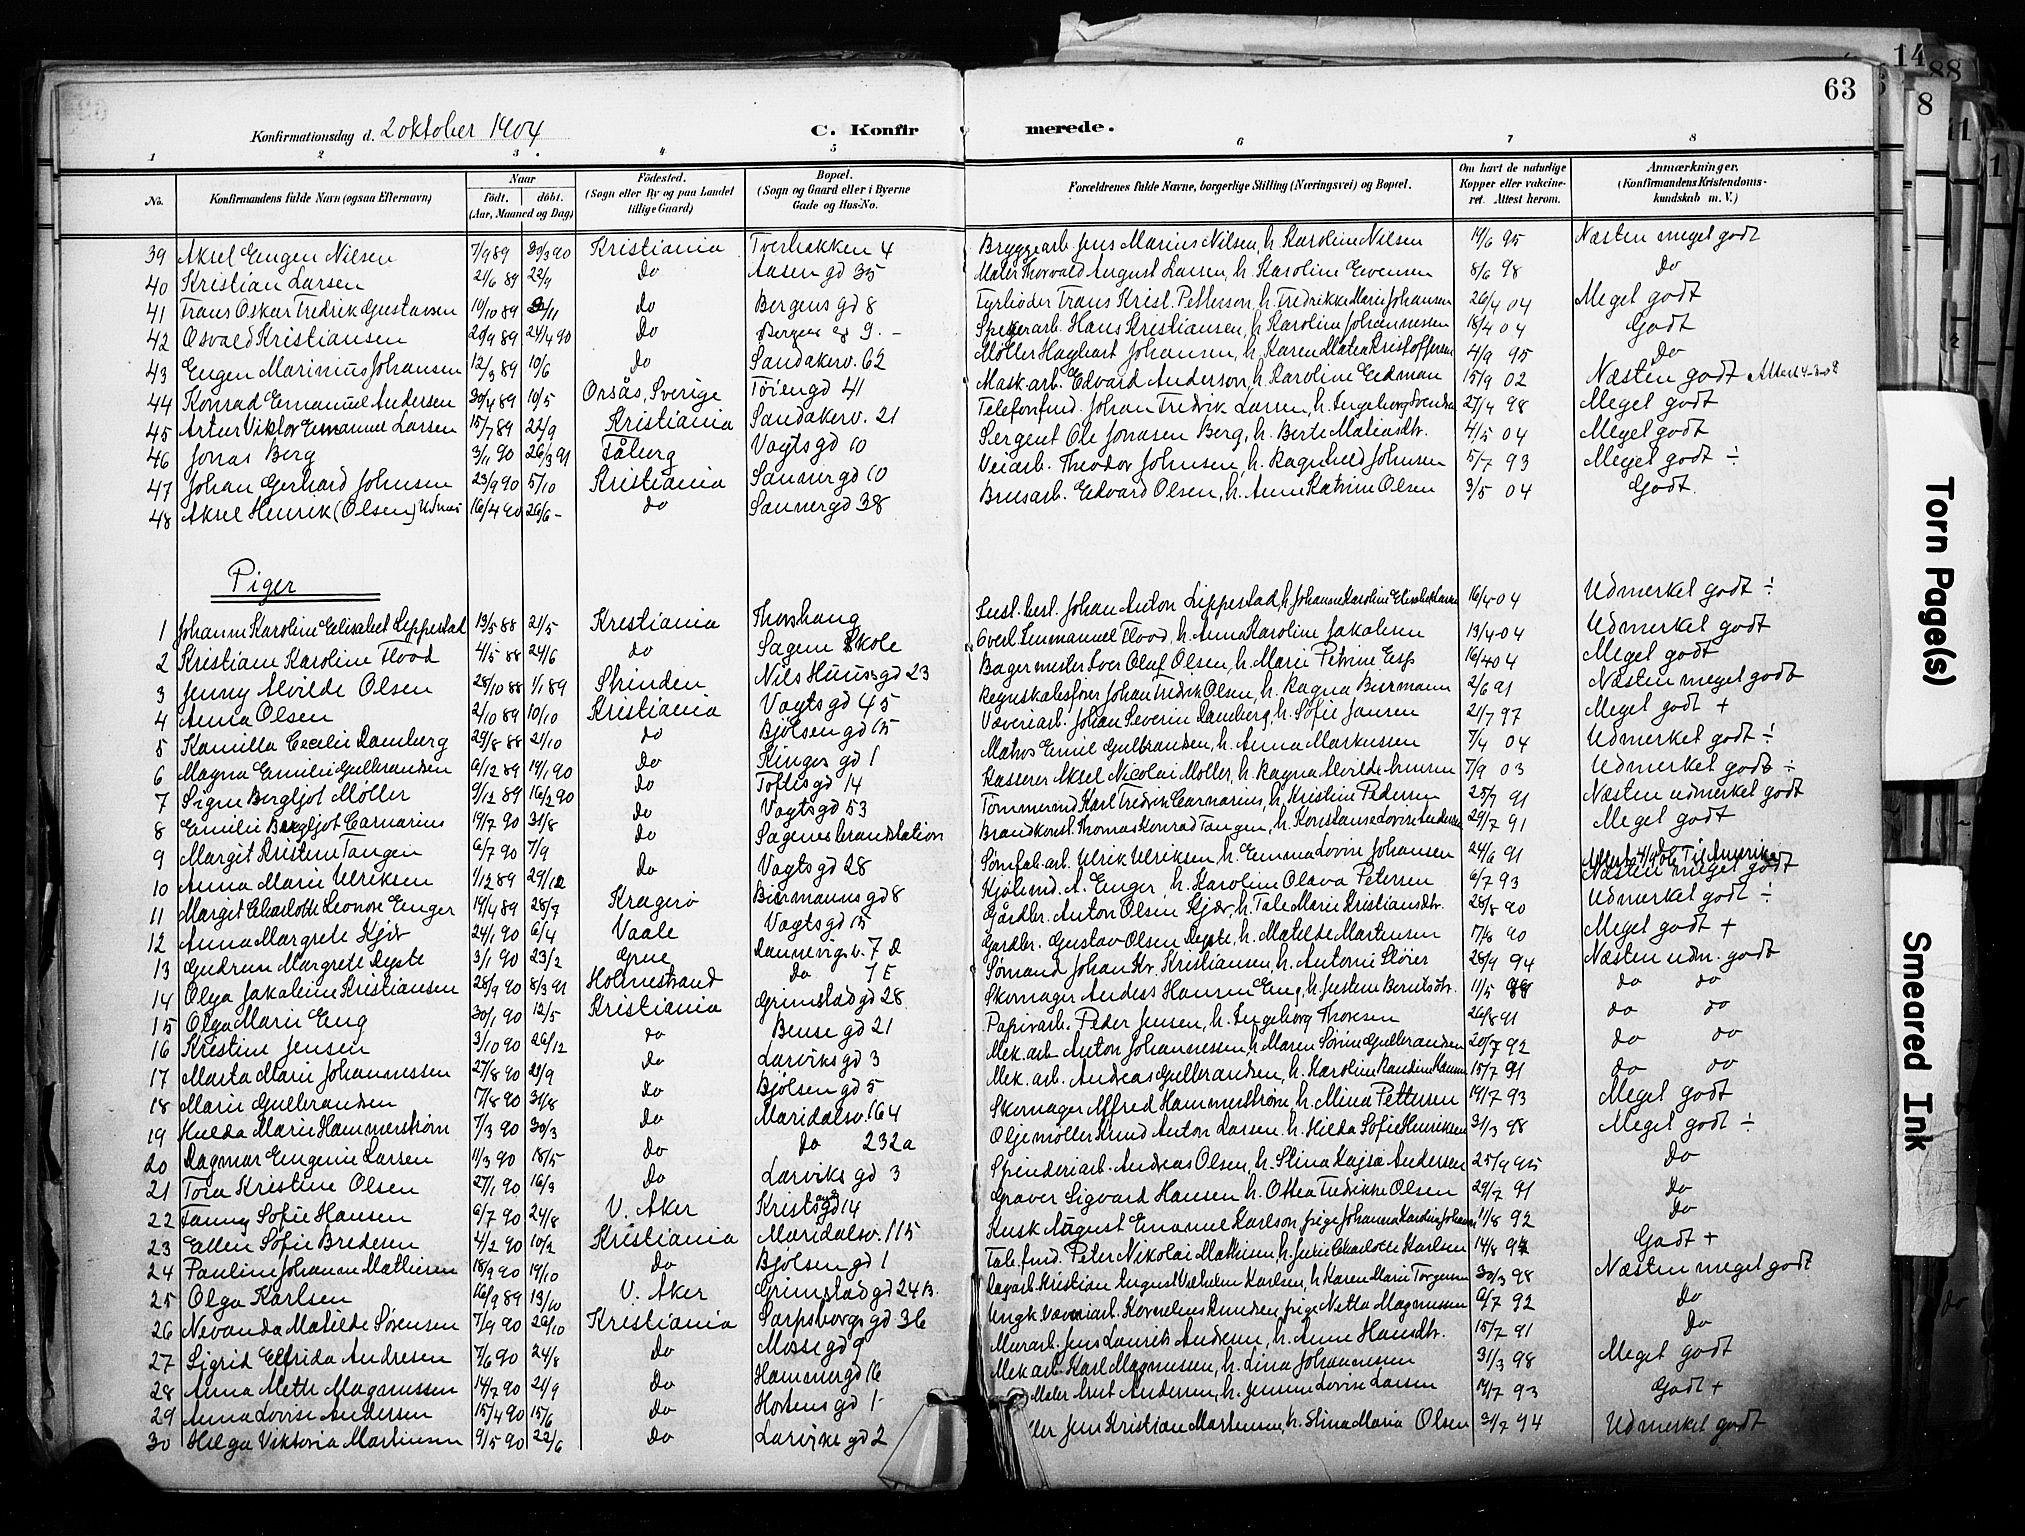 14
88
8
11
1
63
Konfirmationsdag d. 2 oktober 1904
C. Konfirmerede.
1 2 3. 4 5 6 7 8
No.
Konfirmandens fulde Navn (ogsaa Efternavn)
Naar
født. døbt.
(Aar, Maaned og Dag)
Fødested.
(Sogn eller By og paa Landet
tillige Gaard)
Bopæl.
(Sogn og Gaard eller i Byerne
Gade og Hus-No.
Forældrenes fulde Navne, borgerlige Stilling (Næringsvei) og Bopæl.
Om havt de naturlige
Kopper eller vakcine-
ret. Attest herom.
Anmærkninger.
(Konfirmandens Kristendoms-
kundskab m. V.)
39 Aksel Eugen Nilsen 7/9 89 30/3 90 Kristiania Tverbakken 4 Bryggearb. Jens Marius Nilsen, h. Karoline Nilsen 19/6 95 Næsten meget godt
40 Kristian Larsen 21/6 89 22/9 do Aasen gd 35 Maler Thorvald August Larsen, h. Karoline Evensen 8/6 98 do
41 Frans Oskar Fredrik Gustavsen 10/10 89 do Bergens gd 8 Fyrbøder Frans Krist. Petterson, h. Fredrikke Marie Johansen 26/4 04 Meget godt
42 Osvald Kristiansen 20/9 89 24/4 90 do 9. - Hans Kristiansen, h. Karoline Johannessen 18/4 04 Godt
43 Eugen Marinius Johansen 12/3 89 10/6 do Sandakerv. 62 Møller Hagbart Johansen, h. Karen Matea Kristoffersen 4/9 95 do
44 Konrad Emanuel Andersen 30/4 89 10/5 Orsås, Sverige Tøiengd 41 Mask.arb. Edvard Anderson, h. Karoline Eedman 15/9 02 Næsten godt Attest 4-3-08
45 Artur Viktor Emanuel Larsen 15/7 89 22/9 Kristiania Sandakerv. 21 Telefonfmd. Johan Fredrik Larsen, h. Ingeborg Svendsen 27/4 98 Meget godt
46 Jonas Berg 3/11 90 26/3 91 Fåberg Vogts gd 10 Sergent Ole Jonasen Berg, h. Berte Matiasdtr. 4/5 04 Meget godt
47 Johan Gerhard Johnsen 23/9 90 5/10 Kristiania Sannergd 10 Veiarb. Theodor Johnsen, h. Ragnhild Johnsen 5/7 93 Meget godt ÷
48 Aksel Henrik (Olsen) Udnæs 16/4 90 26/6 - do Sannergd 38 Brusarb. Edvard Olsen, h. Anne Katrine Olsen 3/5 04 Godt.
Piger
1 Johanne Karoline Elisabet Lippestad 13/5 88 21/5 Kristiania Thorshaug Johan Anton Lippestad, h. Johanne Karoline Elisabet Larsen 16/4 04 Udmerket godt ÷
2 Kristiane Karoline Flood 4/5 88 24/6 do Sagene Skole Overl. Emmanuel Flood, h. Anna Karoline Jakobsen 13/4 04 Udmerket godt
3 Jenny Alvilde Olsen 28/10 88 1/1 89 Skinden Nils Huusgd 23 Bagermester Iver Olaf Olsen, h. Marie Petrine Esp 16/4 04 Meget godt
4 Anna Olsen 2/10 89 10/10 Kristiania Vogts gd 45 Regnskabsfører Johan Fredrik Olsen, h. Ragna Biermann 2/6 91 Næsten meget godt
5 Kamilla Cecilie Ramberg 29/8 88 21/10 do Bjølsen gd 15 Væveriarb. Johan Severin Ramberg, h. Sofie Jansen 21/7 97 Meget godt +
6 Magna Emilie Gulbrandsen 6/12 89 19/1 90 do Ringes gd 1 Matros Emil Gulbrandsen, h. Anna Markussen 7/4 04 Udmerket godt ÷
7 Signe Bergljot Møller 9/12 89 16/2 90 do Toftesgd 14 Kasserer Aksel Nicolai Møller, h. Ragna Alvilde 7/9 03 Udmerket godt ÷
8 Emilie Bergljot Carnarius 19/7 90 31/8 do Vogtsgd 53 Tømmermd. Karl Fredrik Carnarius, h. Kristine Pedersen 25/7 91 Næsten udmerket godt
9 Margit Kristine Tangen 6/7 90 7/9 do Sagenes brandstation Brandkonst. Thomas Konrad Tangen, h. Konstanse Lovise Andersen 29/7 91 Meget godt
10 Anna Marie Ulriksen 1/12 89 29/12 do Vogts gd 28 Sømfab.arb. Ulrik Ulriksen, h. Emma Lovise Johansen 24/6 91 do Til Amerika
11 Margit Charlotte Leonore Enger 19/4 89 28/7 Kragerø Biermanns gd 8 Kjølemd. A. Enger h. Karoline Olava Petersen 6/7 93 Næsten meget godt
12 Anna Margrete Kjær 24/1 90 6/4 Vaale Vogts gd 15 Gårdbr. Anton Olsen Kjær, h. Tale Marie Kristiansdtr. 28/8 90 Udmerket godt ÷
13 Gudrun Margrete Dyste 3/1 90 23/2 Grue Dannevigsv. 7 D Gårdbr. Gustav Olsen Dyste, h. Matilde Martinsen 17/8 90 Meget godt +
14 Olga Jakobine Kristiansen 28/9 90 8/3 91 Holmestrand do 7 E Sømand Johan Kr. Kristiansen, h. Antonie Stører 28/4 94 Næsten udm. godt
15 Olga Marie Eng 30/1 90 12/5 Kristiania Grimstadgd 28 Skomager Andess Hansen Eng, h. Justine Berntsdtr. 11/5 do do
16 Kristine Jensen 3/10 90 26/12 do Bense gd 21 Papirarb. Peder Jensen, h. Ingeborg Thoresen 26/8 91 do do
17 Marta Marie Johannessen 27/8 90 21/9 do Larviksgd 3 Mek. arb Anton Johannessen, h. Maren Sørine Gulbrandsen 20/7 92 do do
18 Marie Gulbrandsen 17/8 90 31/8 do Bjølsen gd 5 Mek. arb. Andreas Gulbrandsen, h. Karoline Randine Hansen 15/7 91 do do
19 Hulda Marie Hammerstrøm 7/3 90 30/3 do Maridalsv. 164 Skomager Alfred Hammerstrøm, h. Mina Pettersen 19/7 93 Meget godt
20 Dagmar Eugenie Larsen 11/3 90 18/5 do do 232a Oljemøller Knud Anton Larsen, h. Hilda Sofie Henriksen 31/3 98 Meget godt ÷
21 Tora Kristine Olsen 27/1 90 16/3 do Larviks gd 3 Spinderiarb. Andreas Olsen, h. Stina Kajsa Andersen 25/9 95 do
22 Fanny Sofie Hansen 6/7 90 24/8 V. Aker Krists gd 14 Graver Sigvard Hansen, h. Ottea Fredrikke Olsen 29/7 91 do
23 Ellen Sofie Bredesen 4/2 90 10/2 Kristiania Maridalsv. 115 Kusk August Emanuel Karlson, pige Johanna Karoline Johansen 11/8 92 do
24 Pauline Johanne Mathisen 18/9 90 19/10 do Bjølsen gd 1 Peter Nikolai Mathisen, h. Julie Charlotte Karlsen 14/8 Godt +
25 Olga Karlsen 16/9 89 13/10 V. Aker Grimstadgd 24 B. Dagarb. Kristian August Wilhelm Karlsen, h. Karen Marie Torgersen 30/3 98 Næsten meget godt
26 Nevanda Matilde Sørensen 7/9 90 26/10 Kristiania Sarpsborgs gd 36 Ungk. Væveriarb. Kornelius Knudsen, pige Netta Magnussen 6/7 92 do
27 Sigrid Elfrida Andresen 7/6 90 24/8 do Mosse gd 9 Murarb. Jens Laurits Andresen, h. Anne Hansdtr. 15/7 91 do
28 Anna Methe Magnussen 14/7 90 21/9 do Hammergd 16 Mek arb. Karl Magnussen, h. Lina Johannessen 31/3 98 Meget godt
29 Anna Lovise Andersen 15/4 90 15/6 do Hortens gd 1 Maler Andersen, h. Jensine Lovise Larsen 19/7 93 Godt +
30 Helga Viktoria Martinsen 9/5 90 22/6 do Larviks gd 2 Jens Kristian Martinsen, h. Stina Maria Olsen 31/7 94 Udmerket godt
Torn Page(s)
Smeared Ink